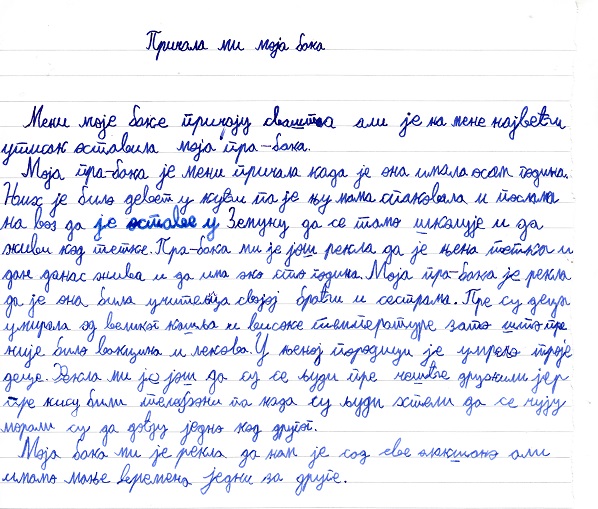 Причала ми моја бака
Мени моје баке причају свашта али је на мене највећи
утисак оставила моја пра-бака.
Моја пра-бака је мени причала када је она имала осам година.
Њих је било девет у кући па је њу мама спаковала и послала
на воз да је оставе у Земуну да се тамо школује и да
живи код тетке. Пра-бака ми је још рекла да је њена тетка и
дан данас жива и да има око сто година. Моја пра-бака је рекла
да је она била учитељица својој браћи и сестрама. Пре су деца
умирала од великог кашља и високе температуре зато што пре
није било вакцина и лекова. У њеној породици је умрело троје
деце. Рекла ми је још да су се људи пре чешће дружили јер
пре нису били телефони па када су људи хтели да се чују
морали су да дођу једно код другог.
Моја бака ми је рекла да нам је сад све лакше али
имамо мање времена једни за друге.